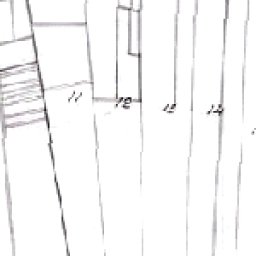 11 12 13 14